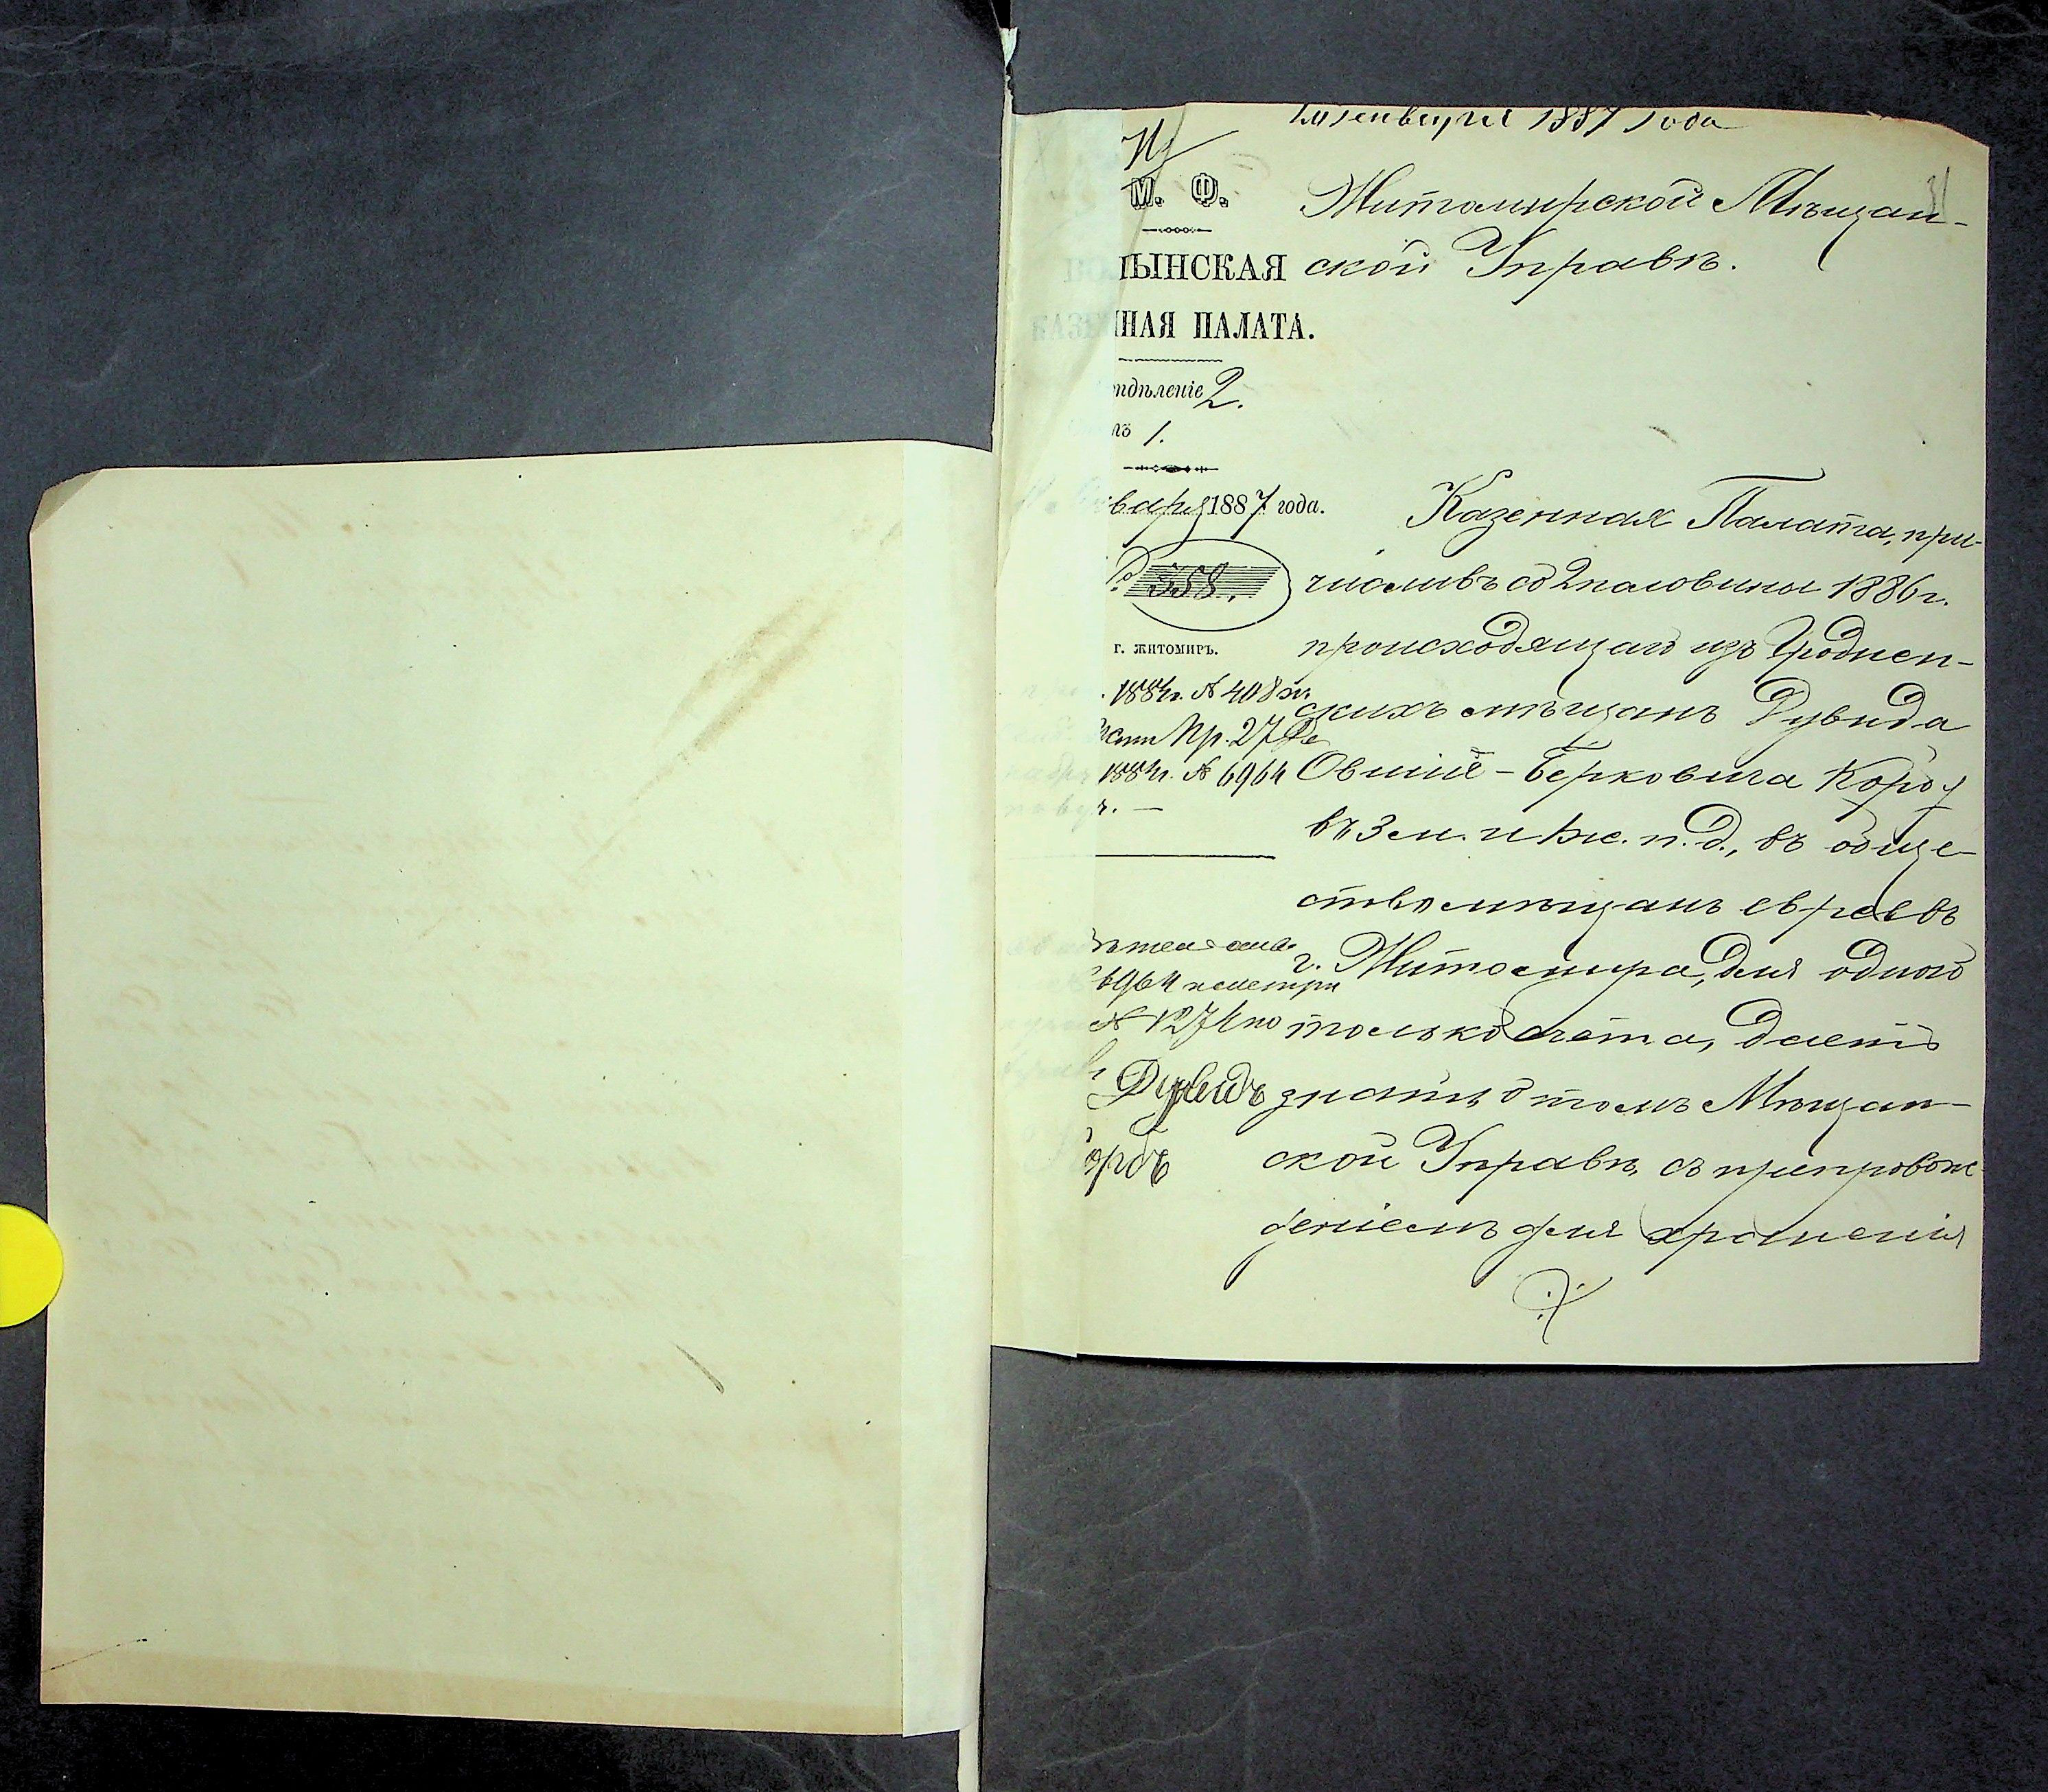 Января 1887 года
М. Ф.
ВОЛЫНСКАЯ
КАЗЕННАЯ ПАЛАТА.
отдѣленіе 2.
1.
января 1887 года.
№ 358.
г. ЖИТОМИРЪ.
1884г. № 408
Пр. 27 Де
1884г. № 6964
6964 и метри
№ 1274 по
Дувидъ
Житомирской Мѣщан-
ской Управѣ.
Казенная Палата, при-
числивъ со 2 половины 1886 г.
происходящаго изъ Гроднен-
скихъ мѣщанъ Дувида
Овшіе-Берковича
въ 3 м. и 1 ж. п. д., въ обще-
ство мѣщанъ евреевъ
г. Житомира, для одного
только счета, даетъ
знать о томъ Мѣщан-
ской Управѣ, съ препровож
деніемъ для храненія